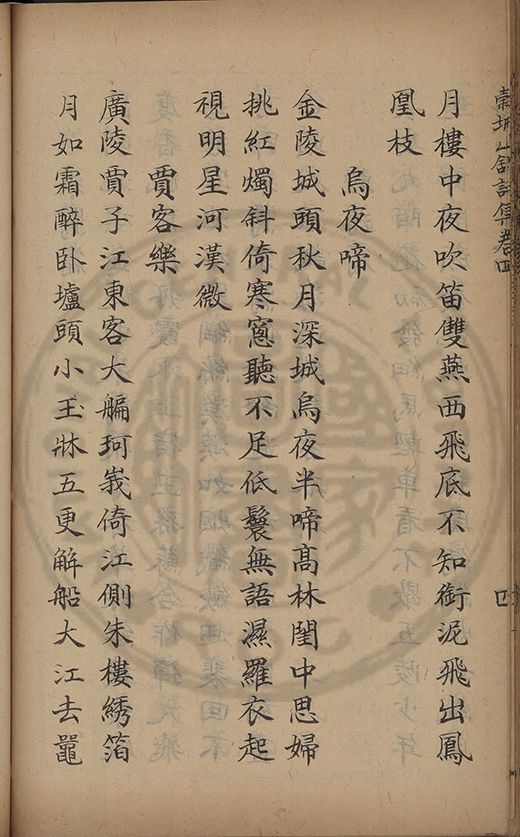 詩集卷四
四
月樓中夜吹笛雙燕西飛底不知銜泥飛出鳳
凰枝
烏夜啼
金陵城頭秋月深城烏夜半啼高林閨中思婦
挑紅燭斜倚寒窻聽不足低鬟無語濕羅衣起
視明星河漢微
賈客樂
廣陵賈子江東客大艑珂峩倚江側朱樓綉箔
月如霜醉卧壚頭小玉牀五更解船大江去鼉